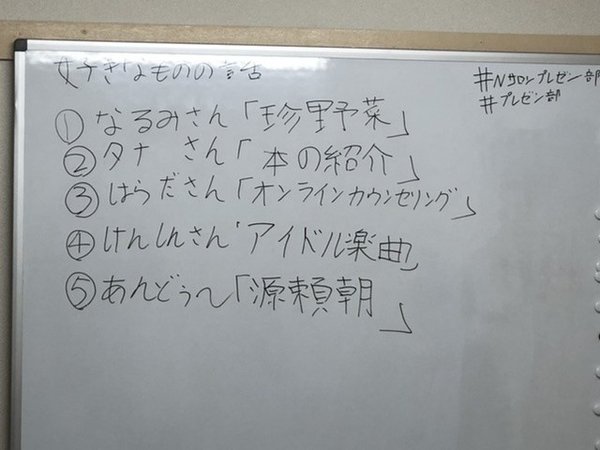 好きなものの話
#Nサロンプレゼン部
#プレゼン部
① なるみさん「珍野菜」
② タナ さん「本の紹介」
③ はらださん「オンラインカウンセリング」
④ けんしんさん「アイドル楽曲」
⑤ あんどぅ〜「源頼朝」